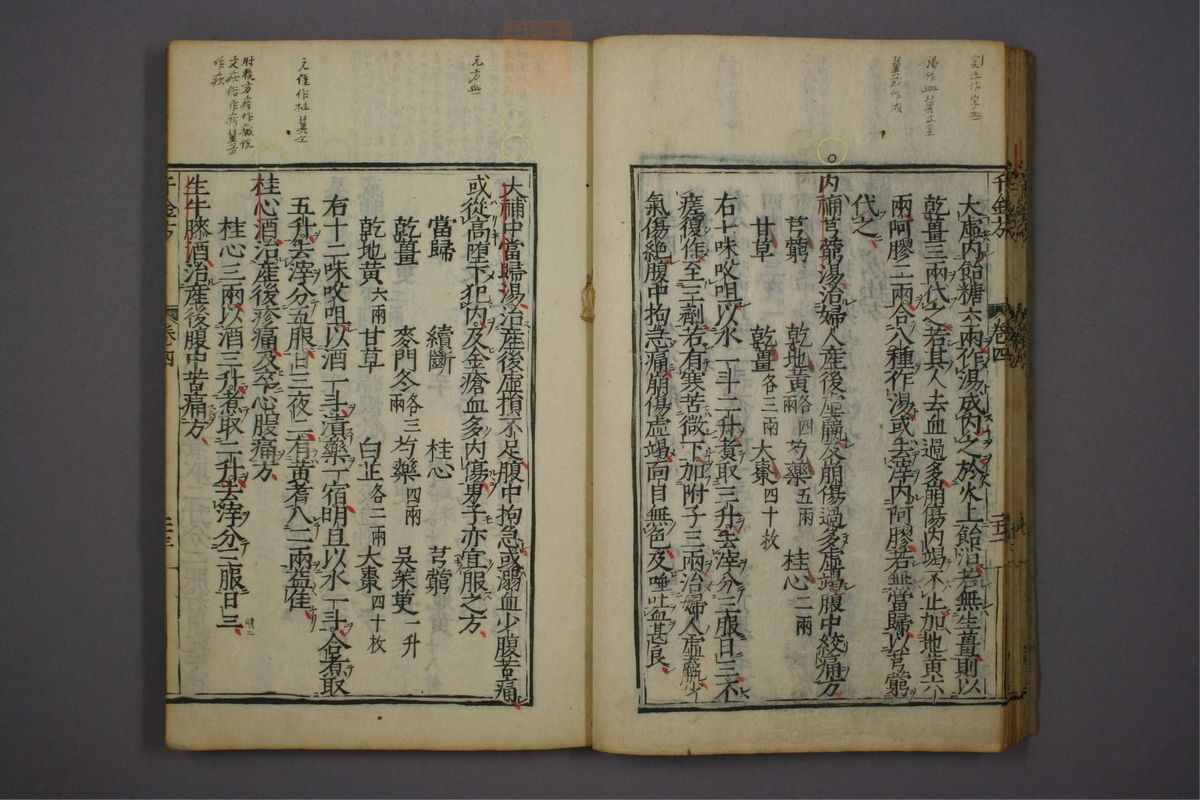 大虛内飴糖六兩作湯成内之於火上飴消若無生薑則以
乾薑三兩代之若其人去血過多崩傷内竭不止加地黄六
兩阿膠二兩合八種作湯或去滓内阿膠若無當歸以芎藭
代之
内補芎藭湯治婦人産後虛羸及崩傷過多虛竭腹中㽲痛方
芎藭 乾地黄各四兩 芍藥五兩 桂心二兩
甘草 乾薑各三兩 大棗四十枚
右七味㕮咀以水一斗二升煮取三升去滓分三服日三不
瘥復作至三劑若有寒苦微下加附子三兩治婦人虛羸少
氣傷絶腹中拘急痛崩傷虛竭面目無色及唾吐血甚良
千金方 卷四
大補中當歸湯治産後虛損不足腹中拘急或溺血少腹苦痛
或從高墮下犯内及金瘡血多内傷男子亦宜服之方
當歸 續斷 桂心 芎藭
乾薑 麥門冬各三兩 芍藥四兩 吳茱萸一升
乾地黄六兩 甘草 白芷各二兩 大棗四十枚
右十二味㕮咀以酒一斗漬藥一宿明旦以水一斗合煮取
五升去滓分五服日三夜二有黄耆入二兩益佳
桂心酒治産後疹痛及卒心腹痛方
桂心三兩以酒三升煮取二升去滓分三服日三
生牛膝酒治産後腹中苦痛方
千金方 卷四
元方無